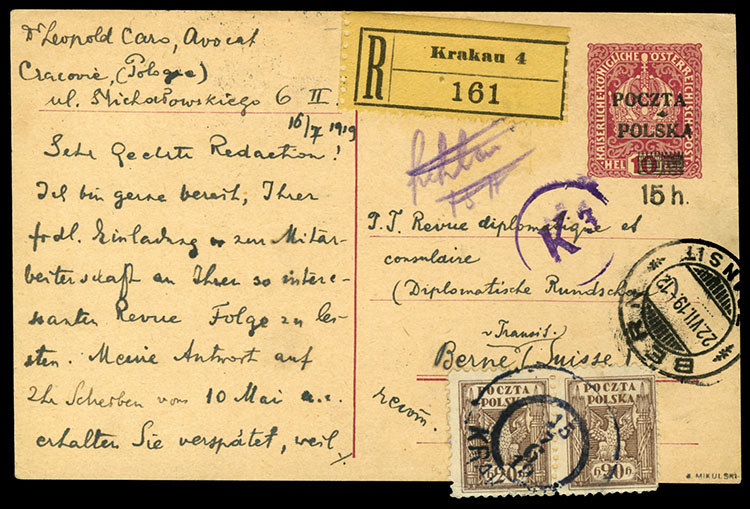 Dr Leopold Caro, Avocat
Cracovie, (Pologne)
ul. Michałowskiego 6 II
16/7 1919
Sehr geehrte Redaction!
Ich bin gerne bereit, Ihrer
frdl. Einladung zur Mitar-
beiterschaft an Ihrer so interes-
santen Revue Folge zu lei-
sten. Meine Antwort auf
Ihr Schreiben vom 10 Mai a.c.
erhalten Sie verspätet, weil
R
Krakau 4
161
KAISERLICHE KÖNIGLICHE ÖSTERREICHISCHE POST
POCZTA
POLSKA
HEL 10
15 h.
fehlen
15 H
K 3
P.T. Revue diplomatique et
consulaire
(Diplomatische Rundsch
Transit
Berne (Suisse)
recom.
BERN
TRANSIT
22.VII.19.-12
POCZTA
POLSKA
20
POCZTA
POLSKA
20
15
KRA
a. MIKULSKI